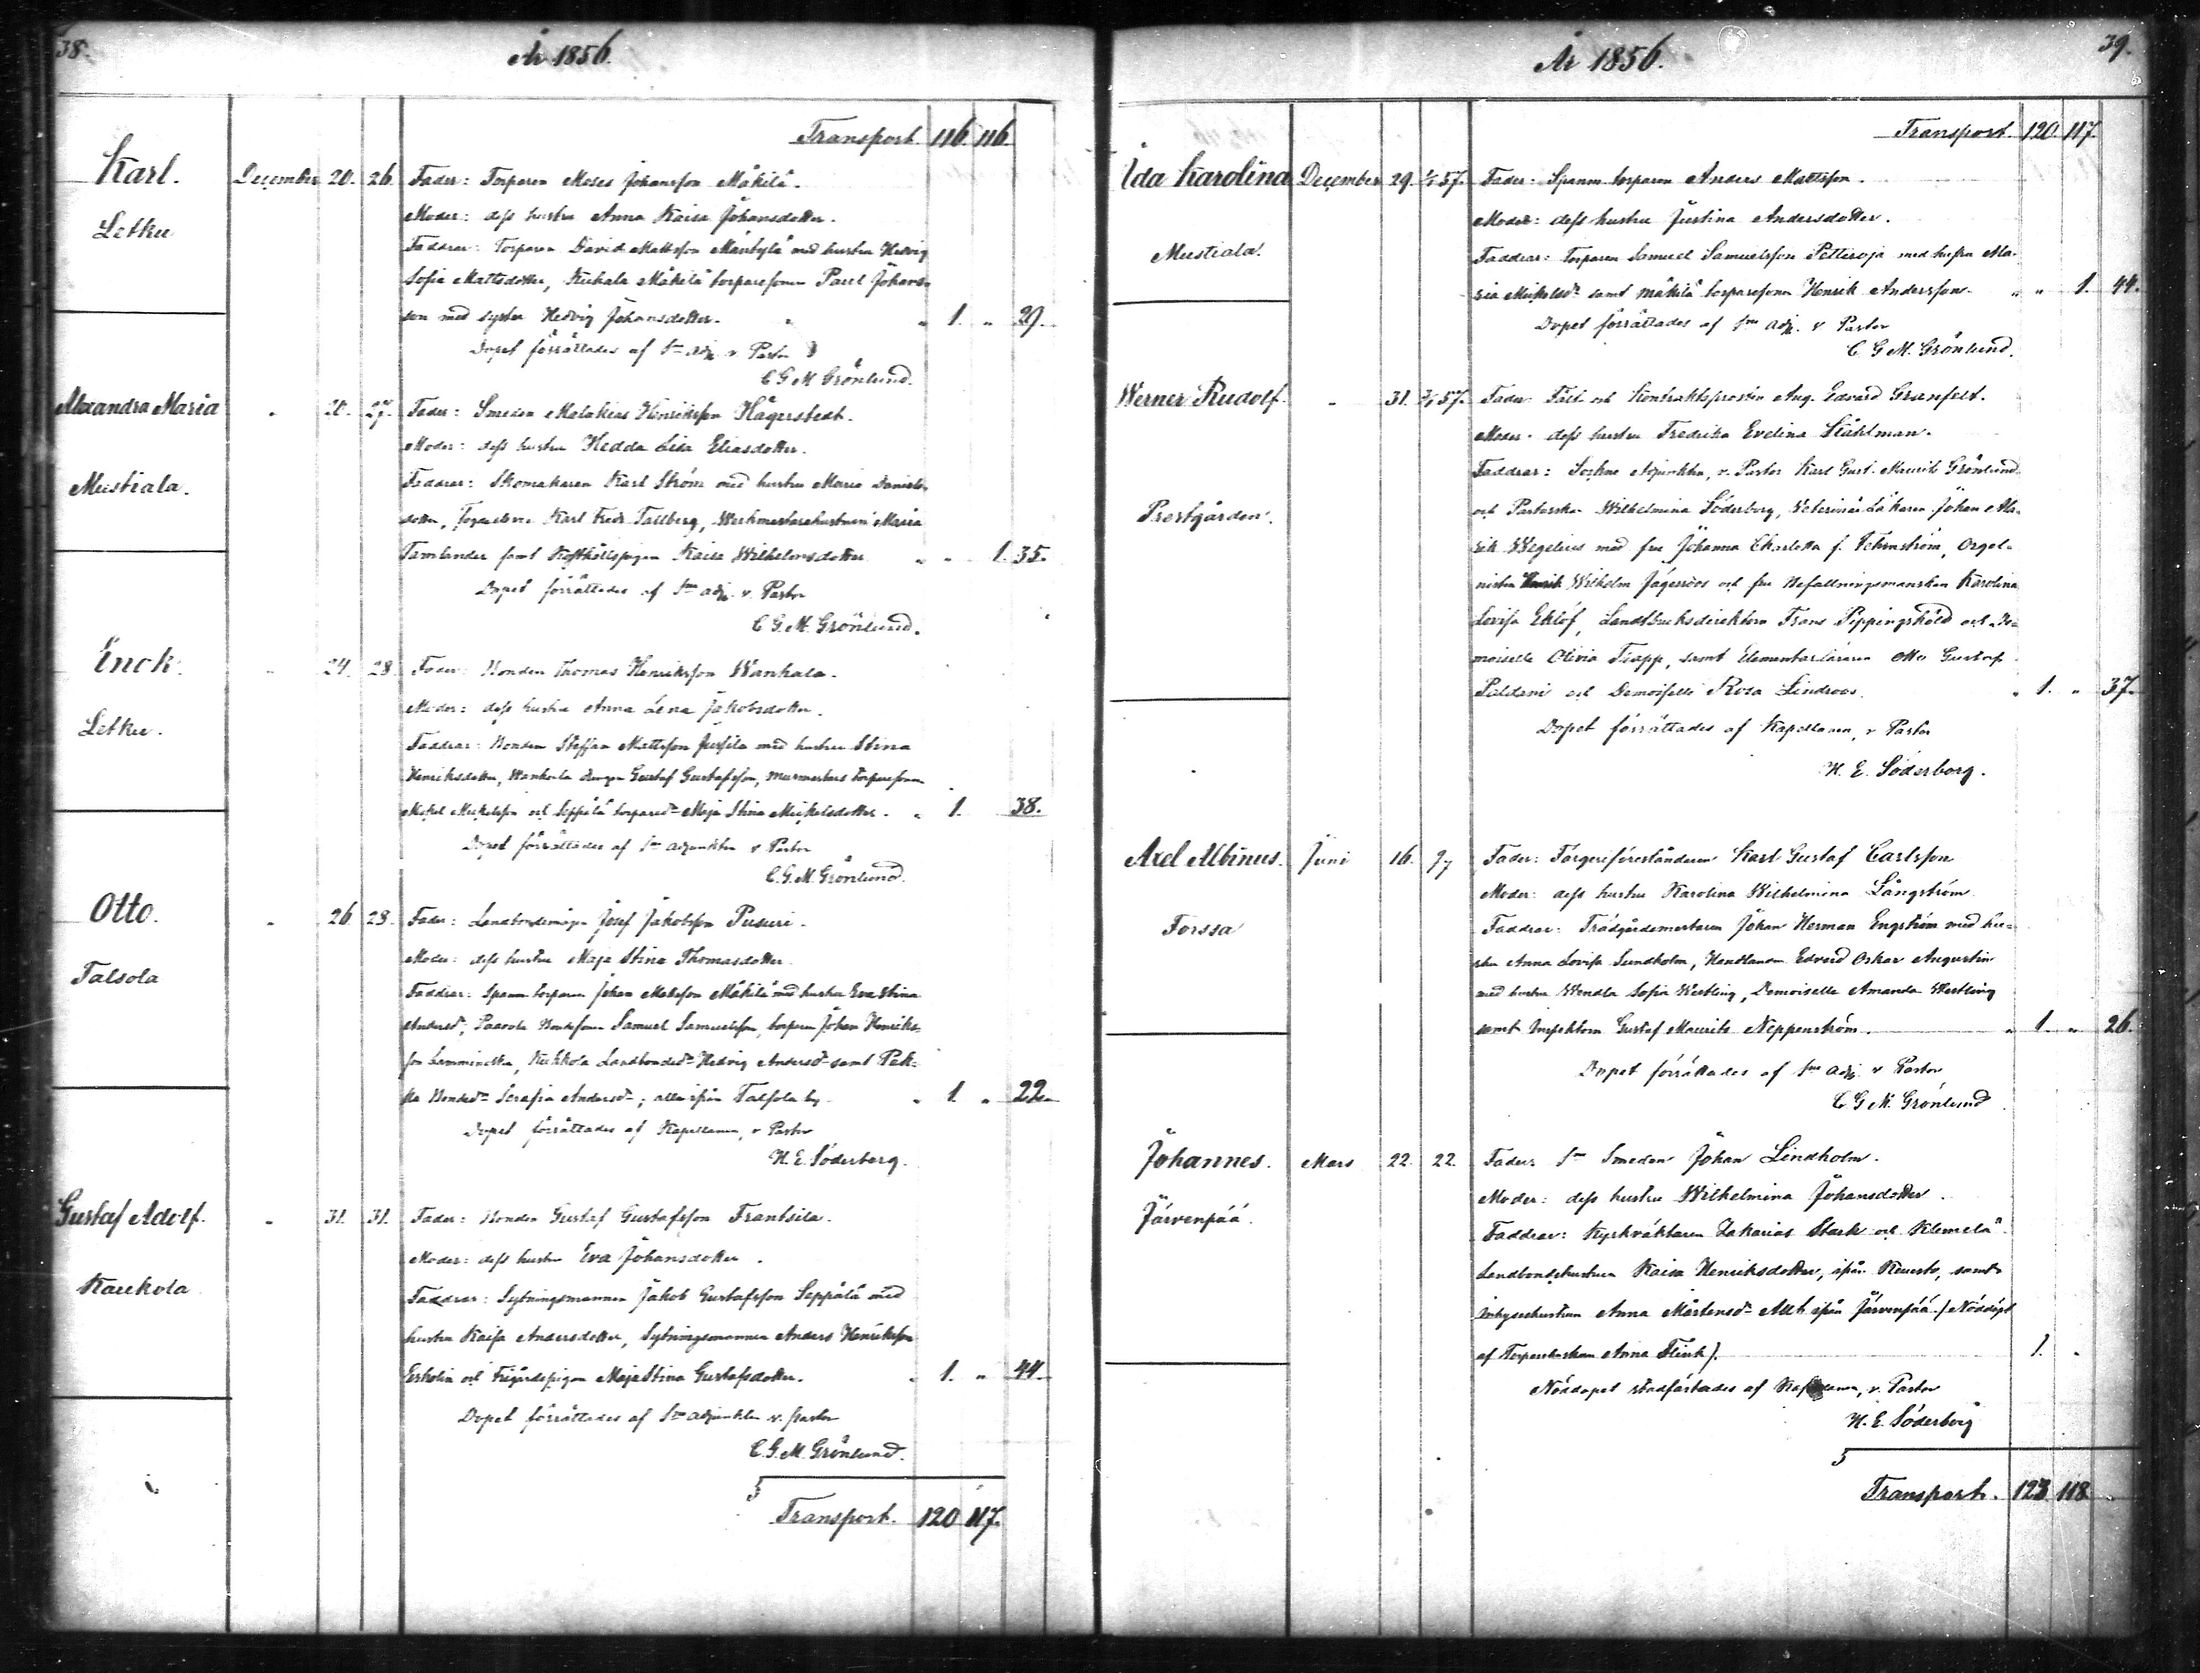 38.
År 1856.
Transport. 116. 116.
Karl. December 20. 26. Fader: Torparen Moses Johansson Mäkilä.
Letku
Moder: dess hustru Anna Kaisa Johansdotter.
Faddrar: Torparen David Mattsson Mäntylä med hustru Hedvig
Sofia Mattsdotter, Mäkilä torparesonen Paul Johans-
son med syster Hedvig Johansdotter. " 1. " 29.
Dopet förrättades af Sne adj. v. Pastor
C. G. M. Grönlund.
Alexandra Maria " 20. 27. Fader: Smeden Malakias Henriksson Hägerstedt.
Mustiala.
Moder: dess hustru Hedda Lisa Eliasdotter.
Faddrar: Skomakaren Karl Ström med hustru Maria Daniels-
dotter, Karl Fredr. Tallberg, Werkmästarehustrun Maria
Tamlander samt Kaisa Wilhelmsdotter " " 1. 35.
Dopet förrättades af Sne adj. v. Pastor
C. G. M. Grönlund.
Enok. " 24. 28. Fader: Bonden Thomas Henriksson Wanhala.
Letku.
Moder: dess hustru Anna Lena Jakobsdotter.
Faddrar: Bonden Steffan Mattsson Jussila med hustru Stina
Henriksdotter, Wanhala drengen Gustaf Gustafsson, torparesonen
Mikel Mickelsson och Seppälä torpared:r Maja Stina Mickelsdotter. " 1. 38.
Dopet förrättades af Sne adjunkten v. Pastor
C. G. M. Grönlund.
Otto. " 26 28. Fader: Landbondemågen Josef Jakobsson Pusuri.
Talsola
Moder: dess hustru Maja Stina Thomasdotter.
Faddrar: Spanm torparen Johan Matsson Mäkilä med hustru Eva Stina
Andersd:r, Paavola Bondesonen Samuel Samuelsson, torparen Johan Henriks-
son, Kukkola Landbonded:r Hedvig Andersd:r samt Pek-
ka Bonded:r Serafia Andersd:r; alla ifrån Talsola by. " 1. " 22.
Dopet förrättades af Kapellanen, v. Pastor
H. E. Söderborg.
Gustaf Adolf. " 31. 31. Fader: Bonden Gustaf Gustafsson Frantsila.
Kaukola
Moder: dess hustru Eva Johansdotter.
Faddrar: Sytningsmannen Jakob Gustafsson Seppälä med
hustru Kaisa Andersdotter, Sytningsmannen Anders Henriksson
Eskolin och Maja Stina Gustafsdotter. " 1. " 44.
Dopet förrättades af Sne adjunkten v. pastor
C. G. M. Grönlund.
5
Transport. 120 117.
39.
År 1856.
Transport. 120. 117.
Ida Karolina December 29. 2/1 57. Fader: Spanm torparen Anders Mattsson.
Mustiala.
Moder: dess hustru Justina Andersdotter.
Faddrar: Torparen Samuel Samuelsson Pettisoja med hustru Ma-
ria Mickelsd:r samt Mäkilä torparesonen Henrik Andersson. " " 1. 44.
Dopet förrättades af Sne adj. v Pastor
C G M. Grönlund.
Werner Rudolf. " 31. 57. Fader Fält och Kontraktsprosten Aug. Edvard Granfelt.
Prestgården.
Moder: dess hustru Fredrika Evelina Ståhlman.
Faddrar: Sockne Adjunkten, v. Pastor Karl Gust. Maurits Grönlund
och Pastorskan Wilhelmina Söderborg, Veterinär Läkaren Johan Ma-
Wegelius med fru Johanna Charlotta f. Fehrnström, Orgel-
nisten Wilhelm Jägerroos och fru Befallningsmanskan Karolina
Lovisa Eklöf, Landtbruksdirektorn Frans Pippingsköld och De-
moiselle Olivia Trapp, samt Elementarläraren Otto Gustaf
Paldani och Demoiselle Rosa Lindroos. " 1. " 37.
Dopet förrättades af Kapellanen, v Pastor
H. E. Söderborg.
Axel Albinus. Juni 16. Fader: Färgeriföreståndaren Karl Gustaf Carlsson
Forssa
Moder: dess hustru Karolina Wilhelmina Långström
Faddrar: Trädgårdsmästaren Johan Herman Engström med hu-
stru Anna Lovisa Sundholm, Handlanden Edvard Oskar Augustin
med hustru Wendla Sofia Westling, Demoiselle Amanda Westling
samt Inspektorn Gustaf Maurits Neppenström. " 1. " 26.
Dopet förrättades af Sne adj. v Pastor
C G M. Grönlund
Johannes. Mars 22. 22. Fader Sne Smeden Johan Lindholm.
Järvenpää.
Moder: dess hustru Wilhelmina Johansdotter.
Faddrar: Kyrkväktaren Zakarias Stark och Klemelä
Landbondehustrun Kaisa Henriksdotter, ifrån Keuesto, samt
Inhyseshustrun Anna Mårtensd:r Alit ifrån Järvenpää. (Nöddöpt
af Torparehustrun Anna Flink). 1. "
Nöddopet stadfästades af Kapellanen, v. Pastor
H. E. Söderborg
5
Transport. 123 118.